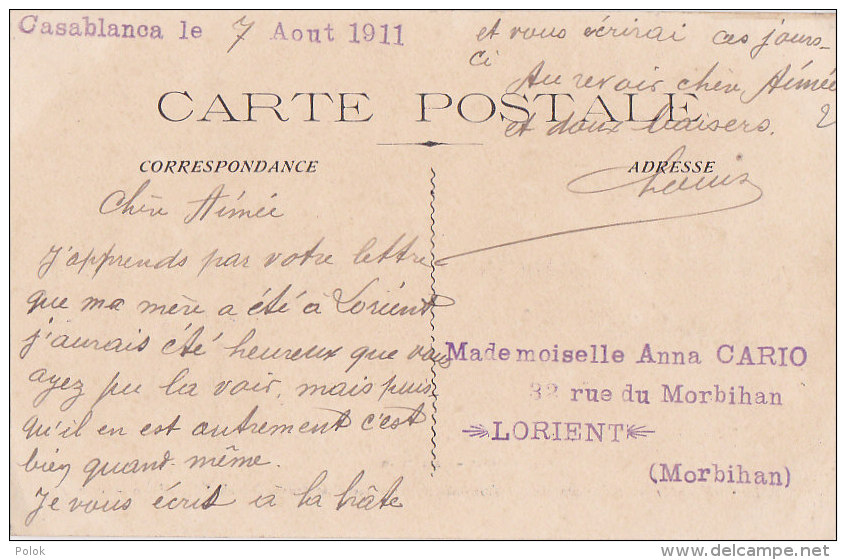 Casablanca le 7 Aout 1911
CARTE POSTALE
CORRESPONDANCE
Chère Aimée
J'apprends par votre lettre
que ma mère a été à Lorient
j'aurais été heureux que vous
ayez pu la voir, mais puis
qu'il en est autrement c'est
bien quand-même.
Je vous écris à la hâte
et vous écrirai ces jours-
ci
Au revoir chère Aimée
et doux baisers.
Louis
ADRESSE
Mademoiselle Anna CARIO
32 rue du Morbihan
LORIENT
(Morbihan)
Polok
delcampe.net